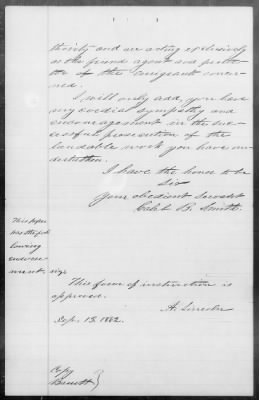 thority and are acting exclusively
as the friend agent and
of the emigrants concer-
ned.
I will only add, you have
my cordial sympathy and
encouragement in the suc-
cessful prosecution of the
laudable work you have un-
dertaken.
I have the honor to be
Sir
Your obedient Servant
Caleb B. Smith.
This paper
has the fol
lowing
endorse
ment,
This form of instruction is
approved.
A. Lincoln
Sep. 13. 1862.
Copy